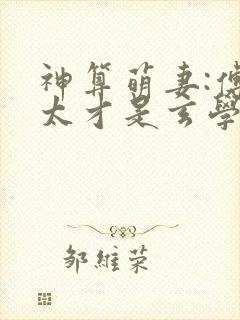 神算萌妻:傅
太才是玄學
邹維荣